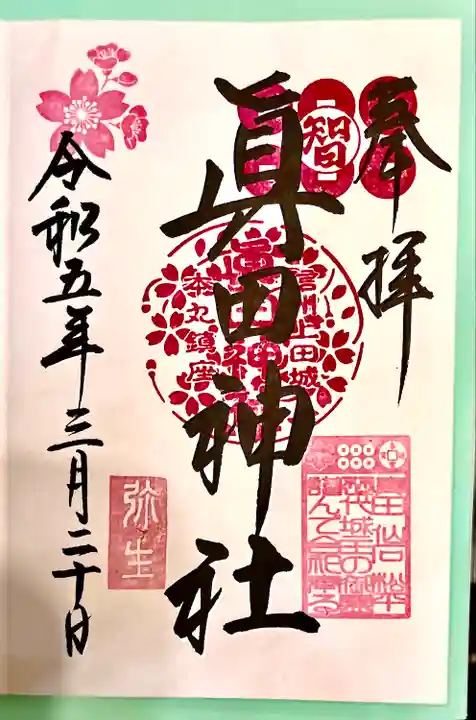 奉拝
智
眞田神社
信州上田城
本丸鎮座
眞田神社
弥生
令和五年三月二十日